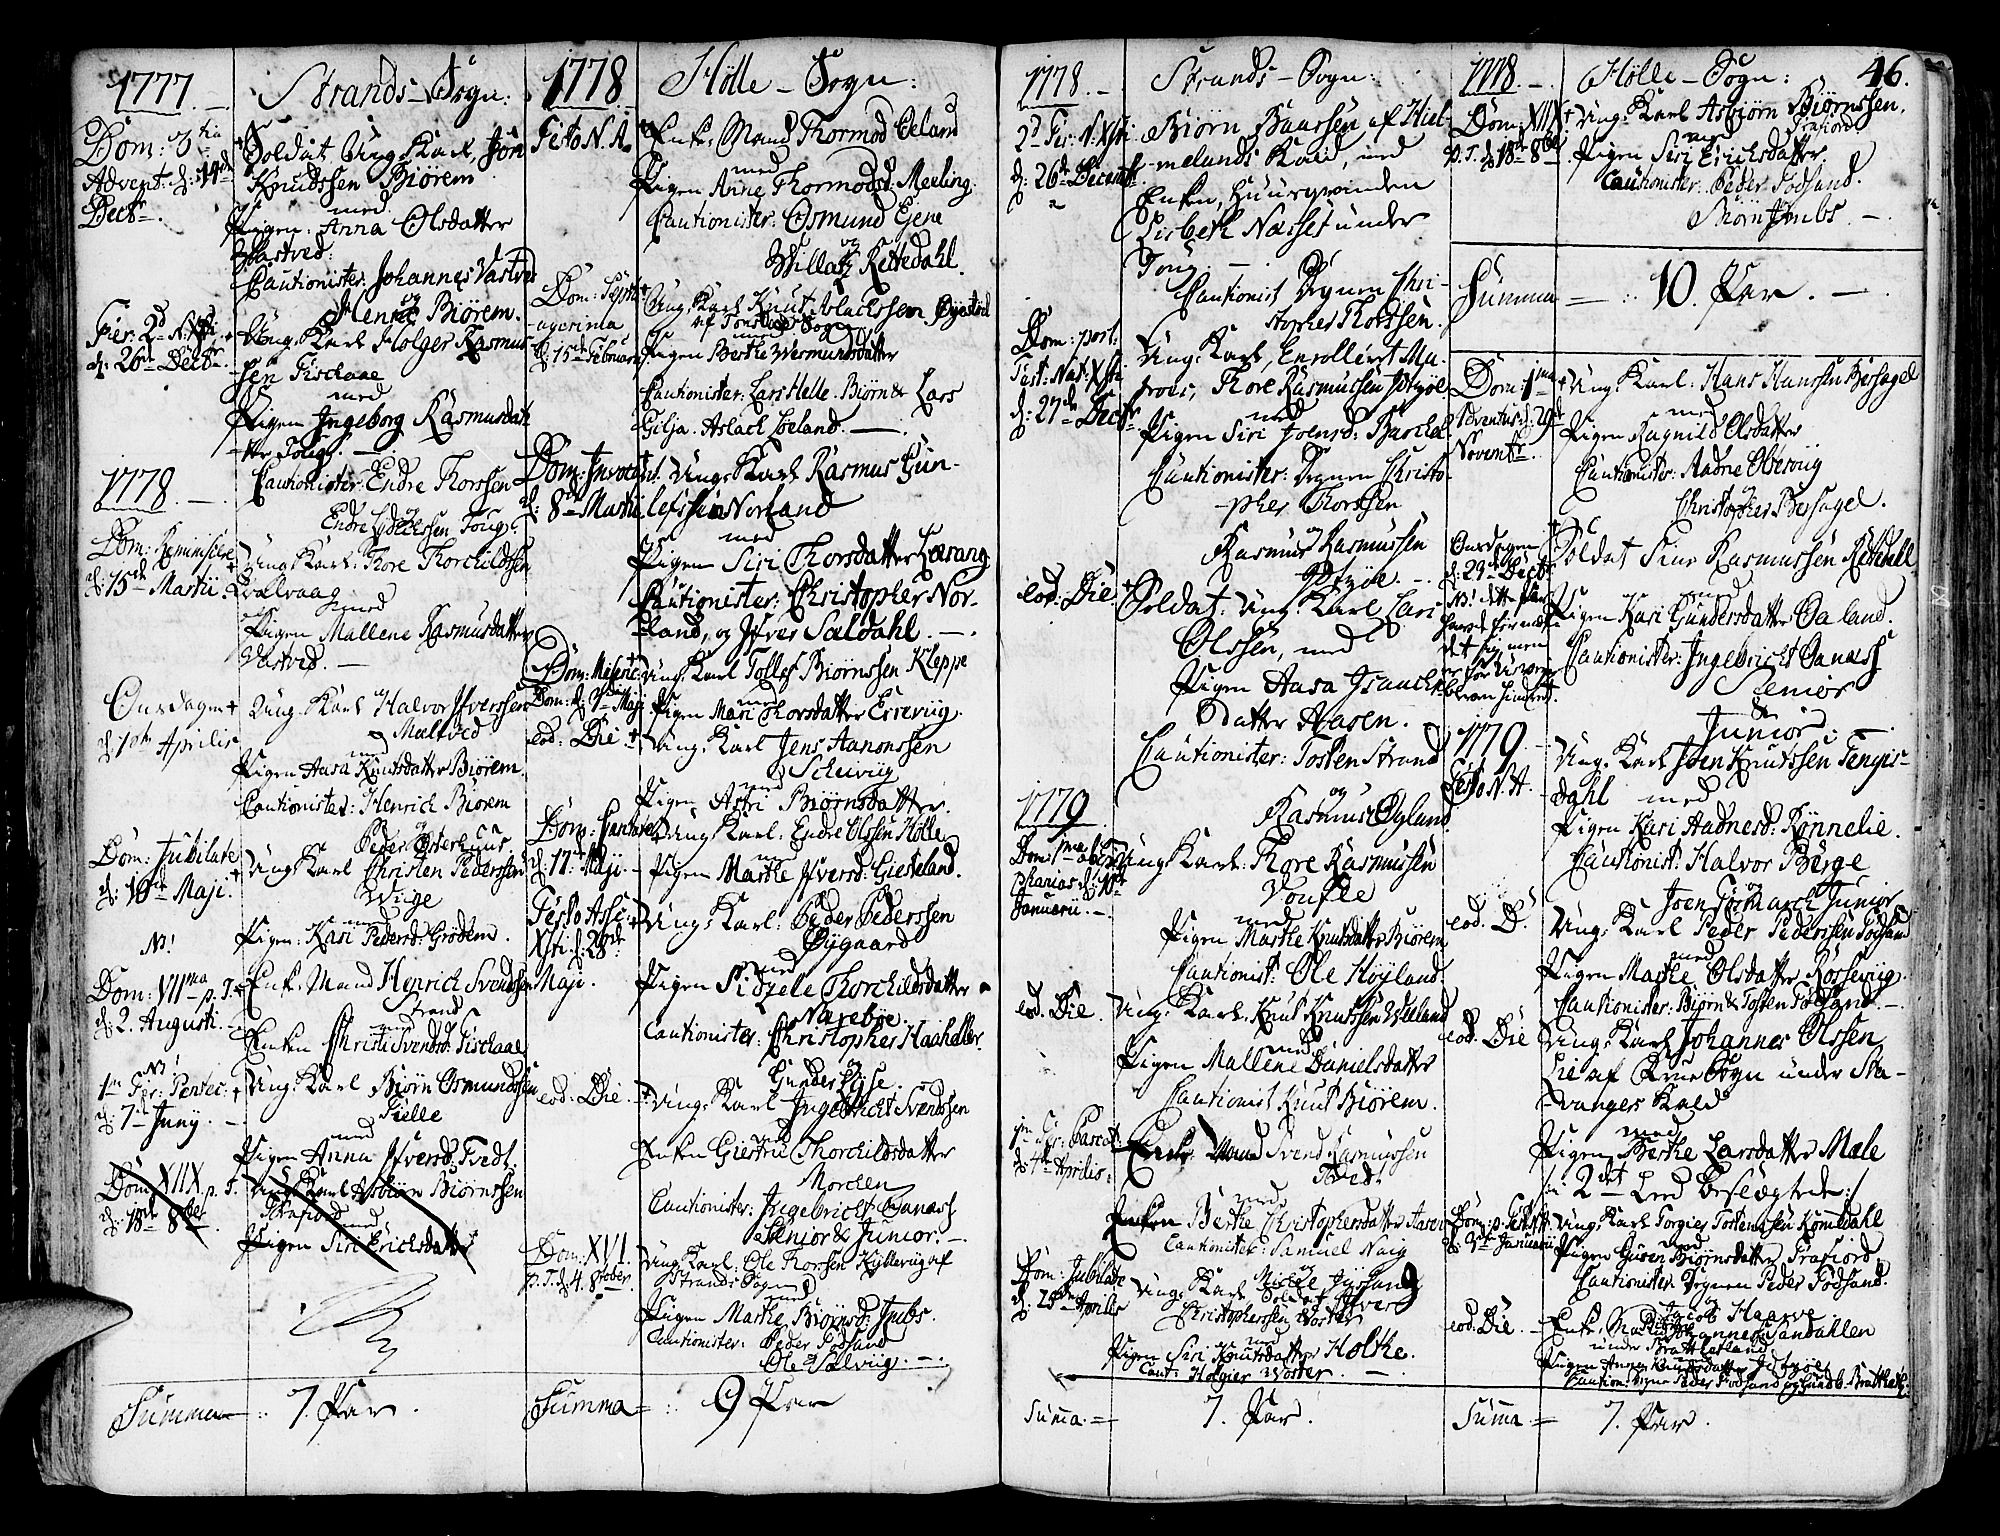 1777. —
Strands-Sogn:
Dom: 3tia
Advent: d: 14de
Decbr.
Soldat Ung Karl, Jon
Knudssen Biørem
med
Pigen: Anna Olsdatter
Vastved.
Cautionister: Johannes Vastved
og
Henric Biørem.
Fer: 2d N. Xsti
d: 26de Decbr.
Ung: Karl Holger Rasmus-
sen Fischaae
med
Pigen Ingeborg Rasmusdat-
ter Toug. —
Cautionister: Endre Thorssen
og
Endre Toug.
1778. —
Dom: Reminiscere
d: 15de Martii.
Ung: Karl: Thore Thorchildssen
Qvalvaag med
Pigen Mallene Rasmusdatter
Vastved. —
Onsdagen
d: 1ste Aprilis
Ung: Karl Halvor Ifverssen
Maltved
med
Pigen Aasa Knutsdatter Biørem.
Cautionister: Henrich Biorem
og
Peder Østerhuus
Dom: Jubilate
d: 10de Maji.
Ung: Karl Christen Pederssen
Wiige
med
Pigen: Kari Pedersd: Grødem.
N!
Dom: VIIma p. T.
d: 2. Augusti. —
Enk: Mand Henrich Svendssen
Strand
med
Enken Christi Svendsd: Fischaae
N!
1m Fer: Pentec:
d: 7de Juny. —
Ung: Karl Biørn Osmundssen
Fielle
med
Pigen Anna Ifversd: Tvedt.
Dom: XIIX p. T.
d: 18de 8ber
Ung: Karl Asbiørn Biørnssen
Frafiord med
Pigen Siri Erichsdatter
Summa — :: 7. Par.
1778
Hölle — Sogn:
Festo N. A.
Enk: Mand Thormod Eeland
med
Pigen Anne Thormodsd: Meeling.
Cautionister: Osmund Eiene
og
Willatz Rettedahl.
Dom: Septu-
agesima
d: 15de Februarii
Ung: Karl Knut Aslachssen Øyestad
med
Pigen Berthe Wermundsdatter
Cautionister: Lars Helle. Biørn & Lars
Gilja. Aslach Eeland. —
Dom: Invocavit
d: 8de Martii
Ung: Karl Rasmus Gun-
lefssen Norland
med
Pigen Siri Thorsdatter Lerang.
Cautionister: Christopher Nor-
land, og Ifver Sældahl. —
Dom: Miseric:
Dom: d: 3die Maji
Ung: Karl Tollef Biørnssen Kleppe
med
Pigen Mari Thorsdatter Erreviig.
eod: Die
Ung: Karl Jens Aanonssen
Scheiviig
med
Pigen Astri Biørnsdatter.
Dom: Cantate
d: 17de Maji —
Ung: Karl: Endre Olssen Hölle
med
Pigen Marthe Ifversd: Giesteland.
Festo Asc:
Xsti. d: 28de
Maji.
Ung: Karl: Peder Pederssen
Øygaard
med
Pigen Sidzele Thorchildsdatter
Nærebøe.
Cautionister: Christopher Haaheller
og
Gunder Eise.
eod: Die. —
Ung: Karl Ingebricht Svendssen
med
Enken Giertru Thorchildsdatter
Morchen
Cautionister: Ingebricht Oanæss
Senior & Junior. —
Dom: XVI.
p. T. d: 4. October.
Ung: Karl: Ole Thorssen Kylleviig af
Strands Sogn
med
Pigen Marthe Biørnsd: Imbs.
Cautionister: Peder Fossand
Ole Salviig. —
Summa = :: 9 Par
1778. —
Strands — Sogn:
2d Fer: N. Xsti
d: 26de Decembr.
Biørn Baarssen af Hiel-
melands Kald, med
Enken, Huusqvinden
Lisbeth Næsset under
Toug. —
Cautionist Degnen Chri-
stopher Thorssen.
Dom: post
Fest: Nat: Xsti
d: 27de Decbr
Ung: Karl, Enrollert Ma-
tros, Thore Rasmussen Idsøe
med
Pigen Siri Joensd: Barchel
Cautionister: Degnen Christo-
pher Thorssen
og
Rasmus Rasmussen
Idsøe. —
eod: Die.
Soldat: Ung: Karl Lars
Olssen, med
Pigen Aasa Isaachs-
datter Aasen.
Cautionister: Tosten Strand
og
Rasmus Øyland
1779
Dom: 1ma
d: 10de
Januarii. —
Ung: Karl: Thore Rasmussen
Voufle
med
Pigen Marthe Knutsdatter Biørem
Cautionist: Ole Höyland.
eod: Die.
Ung: Karl: Knut Knutssen Veeland
med
Pigen Mallene Danielsdatter
Cautionist Knut Biørem.
1m Fer: Pascat:
d: 4de Aprilis:
Enk: Mand Svend Rasmussen
Tvedt
med
Enken Berthe Christophersdatter Aasen
Cautionister: Samuel Naig
Dom: Jubilate
d: 25de Aprilis
Ung: Karl Soldat Ifver
Christopherssen Voster
med
Pigen Siri Knutsdatter Holthe.
Caut: Holgier Voster. —
Summa. = 7. Par.
1778. —
Hölle — Sogn:
46.
Dom: XIIX
p. T. d: 18de 8ber
Ung: Karl Asbiørn Biørnssen,
med Frafiord
Pigen Siri Erichsdatter.
Cautionister: Peder Fossand.
Biørn Imbs. —
Summa = :: 10. Par. —
Dom: 1ma
Adventus d: 29de
Novembr.
Ung: Karl: Hans Hanssen Bersagel
med
Pigen Ragnild Olsdatter
Cautionister: Aadne Obereiig
og
Christopher Bersagel.
Onsdagen
d: 29de Decbr
Soldat Siur Rasmussen Refsall
med
Pigen Kari Gundersdatter Oaland.
Cautionister: Ingebricht Oanæss
Senior
&
Junior. —
1779. —
Festo N. A.
Ung: Karl Joen Knutssen Tengis-
dahl med
Pigen Kari Aadnesd: Rönnelie.
Cautionist: Halvor Berge
og
Joen Junior
eod. D.
Ung: Karl Peder Pederssen Fossand
med
Pigen Marthe Olsdatter Rosseviig.
Cautionister: Biørn & Tosten Fossand. —
eod: Die
Ung: Karl Johannes Olssen
Lie af Sogn under Sta-
vanger Kald
med
Pigen Berthe Larsdatter Mæle
/: i 2det Led beslægtede :/
Dom: p. Fest: N. A.
d: 3de Januarii
Ung: Karl Torgier Tostenssen Kommedahl
med
Pigen Guren Biørnsdatter Frafiord.
Cautionister: Degnen Peder Fossand.
og
Jacob Haavve
eod: Die. —
Enk: Mand Johannes Sandahlen
under Brattetland
Pigen Anna Knutsdatter Idsøe
Caution: Degnen Peder Fossand og
Summa = 7. Par.